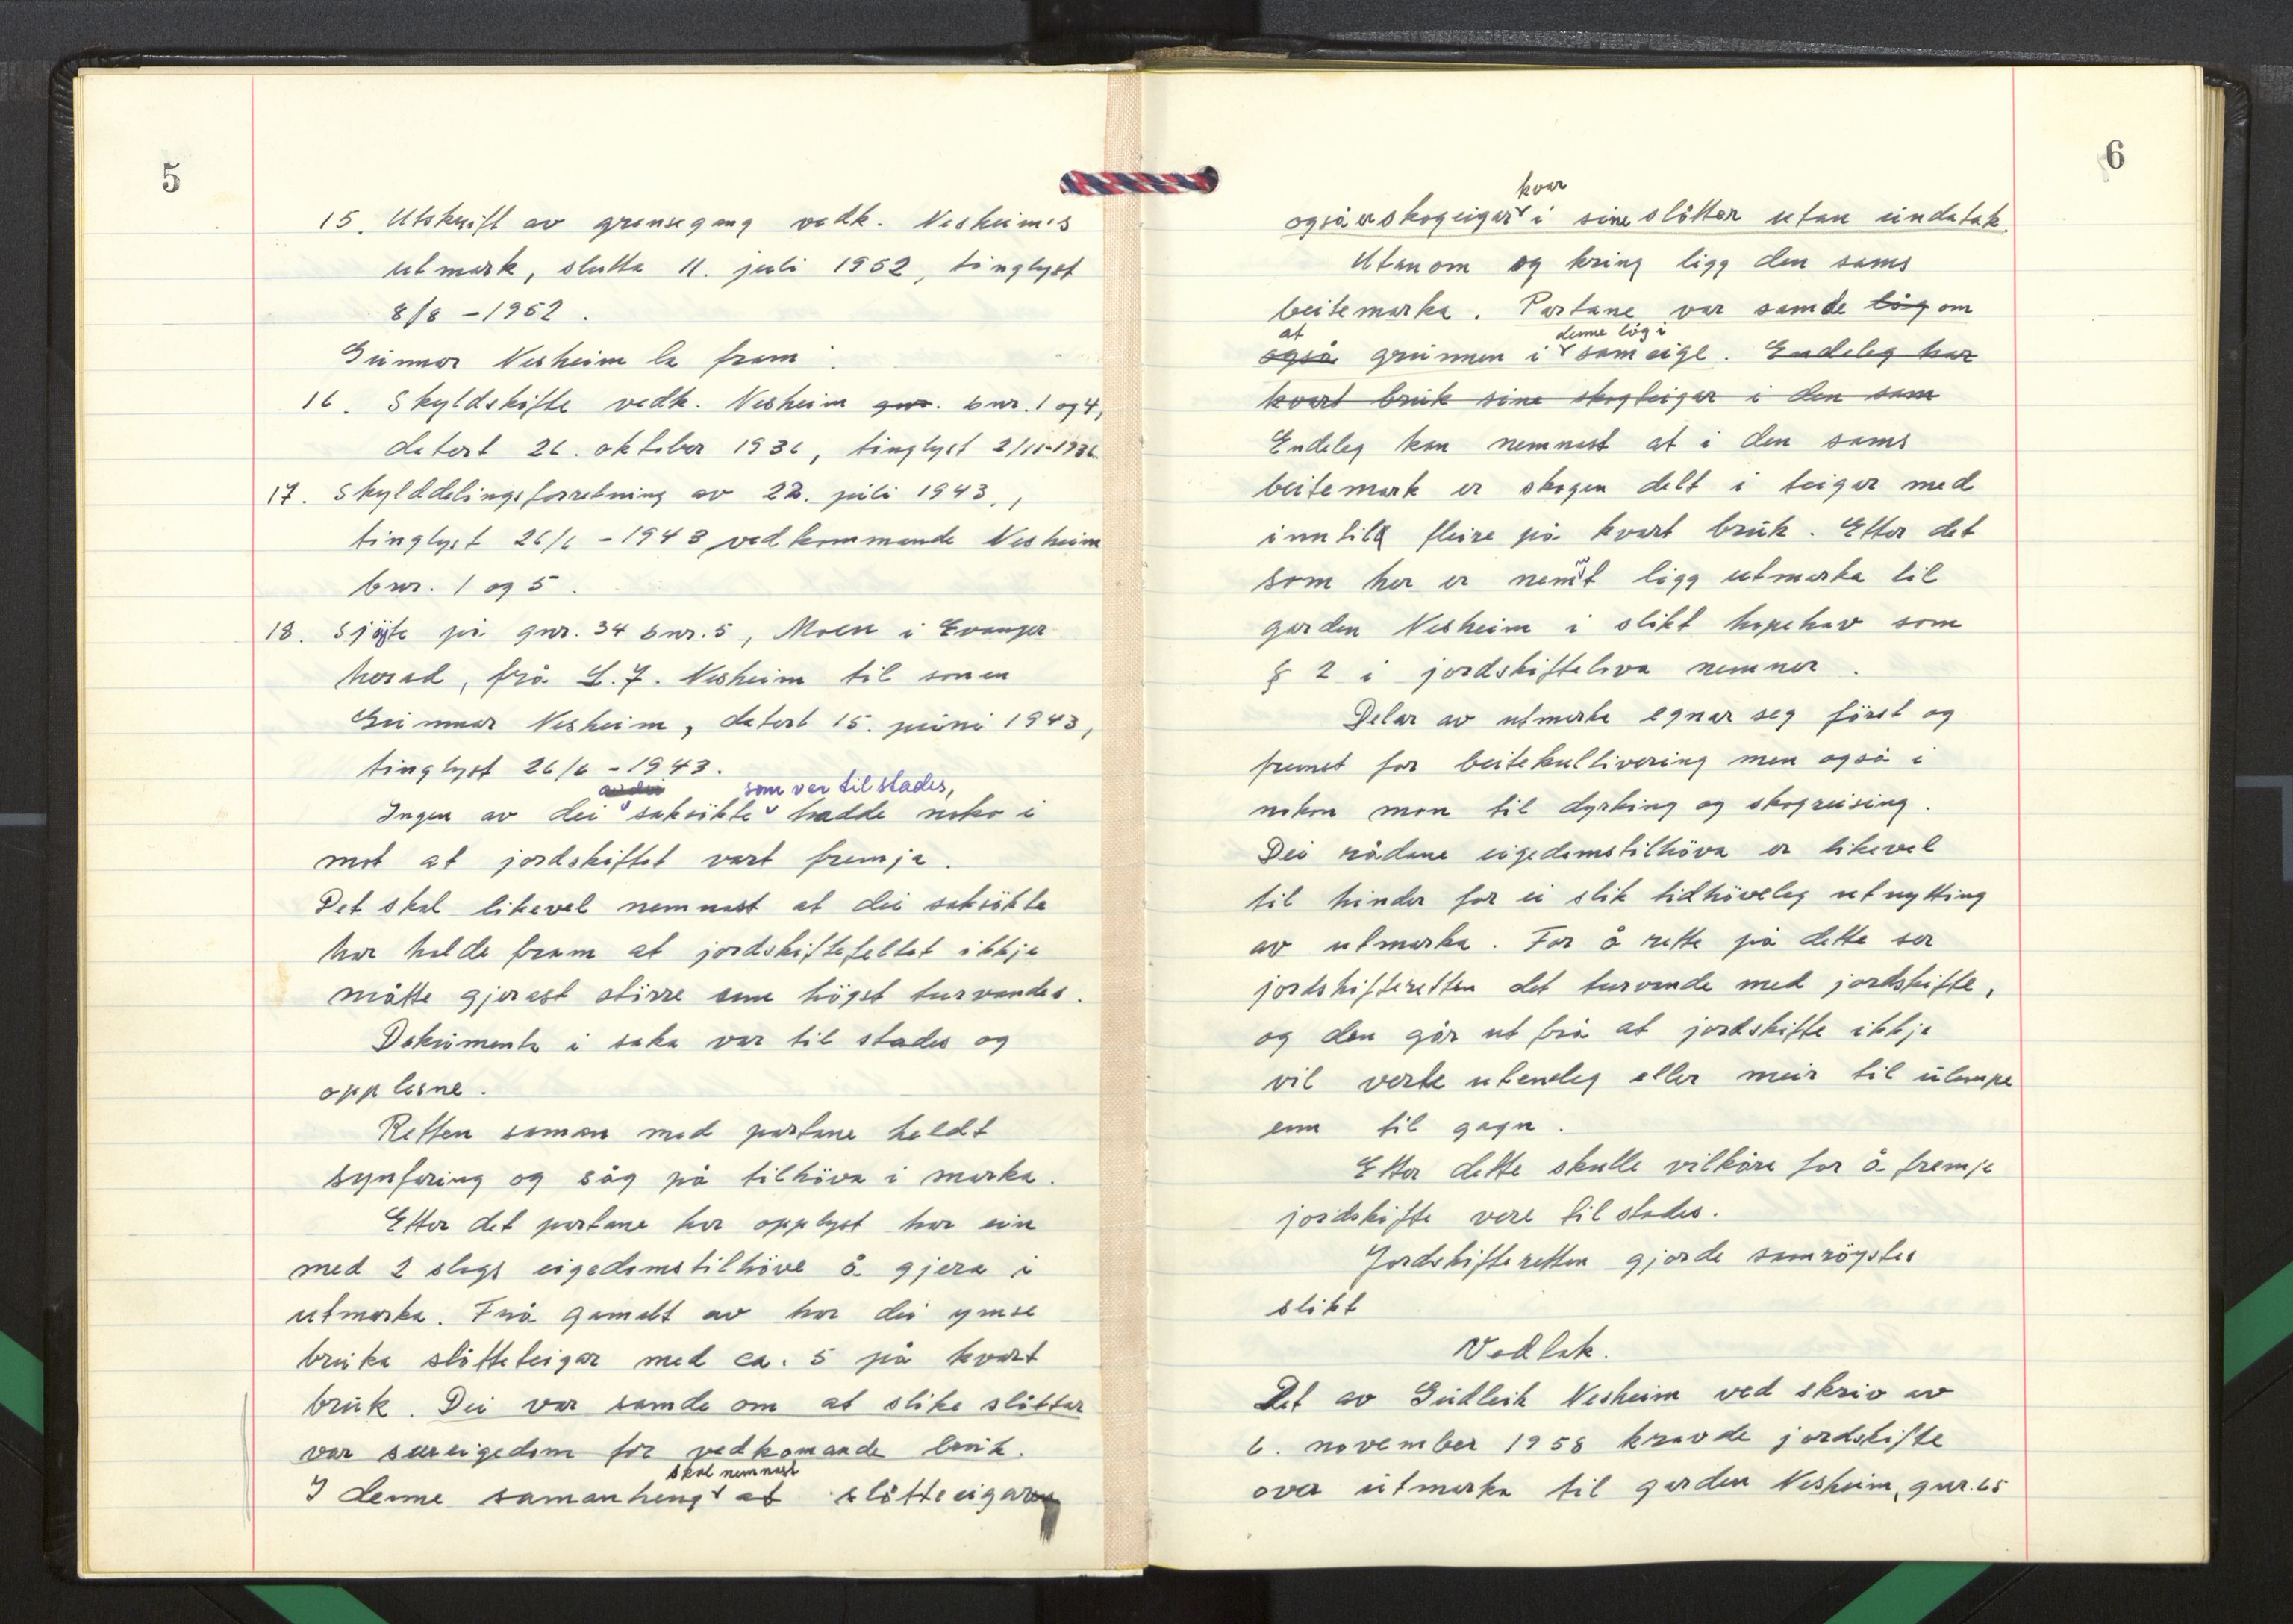 5
15. Utskrift av grensegang vedk. Nesheims
utmark, slutta 11. juli 1952, tinglyst
8/8 - 1952.
Gunnar Nesheim la fram:
16. Skyldskifte vedk. Nesheim gnr. bnr. 1 og 4,
datert 26. oktober 1936, tinglyst 2/11-1936
17. Skylddelingsforretning av 22. juli 1943.,
tinglyst 26/6 - 1943 vedkommande Nesheim
bnr. 1 og 5.
18. Sjøyte på gnr. 34 bnr. 5, Moen i Evanger
herad, frå L. J. Nesheim til sonen
Gunnar Nesheim, datert 15. juni 1943,
tinglyst 26/6 - 1943.
som var tilstades,
Ingen av dei saksökte hadde noko i
mot at jordskiftet vart fremja.
Det skal likevel nemnast at dei saksökte
har halde fram at jordskiftefeltet ikkje
måtte gjerast större enn högst turvandes.
Dokumenta i saka var til stades og
opplesne.
Retten saman med partane heldt
synfaring og såg på tilhöva i marka.
Etter det partane har opplyst har ein
med 2 slags eigedomstilhöve å gjera i
utmarka. Frå gamalt av har dei ymse
bruka slåtteteigar med ca. 5 på kvart
bruk. Dei var samde om at slike slåttar
var særeigedom for vedkomande bruk.
skal nemnast
I denne samanheng at slåtteeigaren
6
kvar
også er skogeigar i sine slåtter utan eindatak.
Utanom og kring ligg den sams
beitemarka. Partane var samde låg om
at denne låg i
også grunnen i sameige. Endeleg har
kvart bruk sine skogteigar i den sam
Endeleg kan nemnast at i den sams
beitemark er skogen delt i teigar med
inntil fleire på kvart bruk. Etter det
som her er nemnt ligg utmarka til
garden Nesheim i slikt hopehav som
§ 2 i jordskiftelova nemner.
Delar av utmarka egnar seg först og
fremst for beitekultivering men også i
nokon mon til dyrking og skogreising.
Dei rådane eigedomstilhöva er likevel
til hinder for ei slik tidhöveleg utnytting
av utmarka. For å rette på dette ser
jordskifteretten det turvande med jordskifte,
og den går ut frå at jordskifte ikkje
vil verte utenleg eller meir til ulempe
enn til gagn.
Etter dette skulle vilkåra for å fremje
jordskifte vere tilstades.
Jordskifteretten gjorde samröystes
slikt
Vedtak.
Det av Gudleik Nesheim ved skriv av
6. november 1958 kravde jordskifte
over utmarka til garden Nesheim, gnr. 65